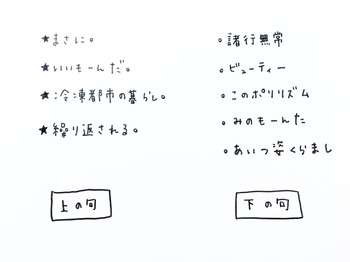 ★まさに。
★いいもーんだ。
★冷凍都市の暮らし。
★繰り返される。
上の句
。諸行無常
。ビューティー
。このポリリズム
。みのもーんた
。あいつ姿くらまし
下の句